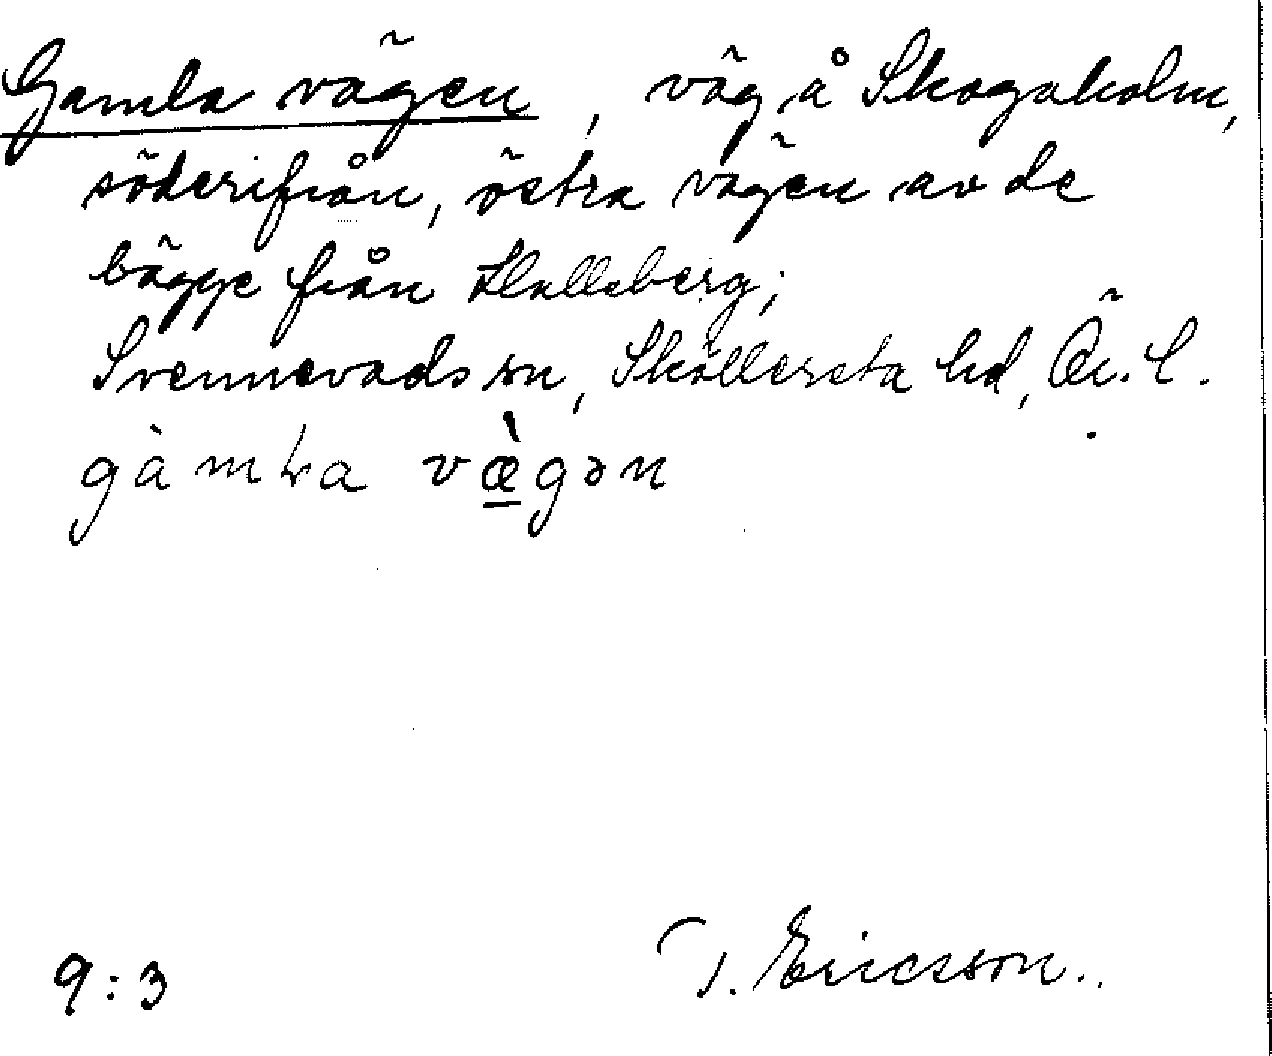 Gamla vägen, väg å Skogaholm,
söderifrån, östra vägen av de
bägge från Halleberg;
Svennevads sn, Sköllersta hd, Ör. l.
gàmɫa væ̀gən
9:3 T. Ericsson.